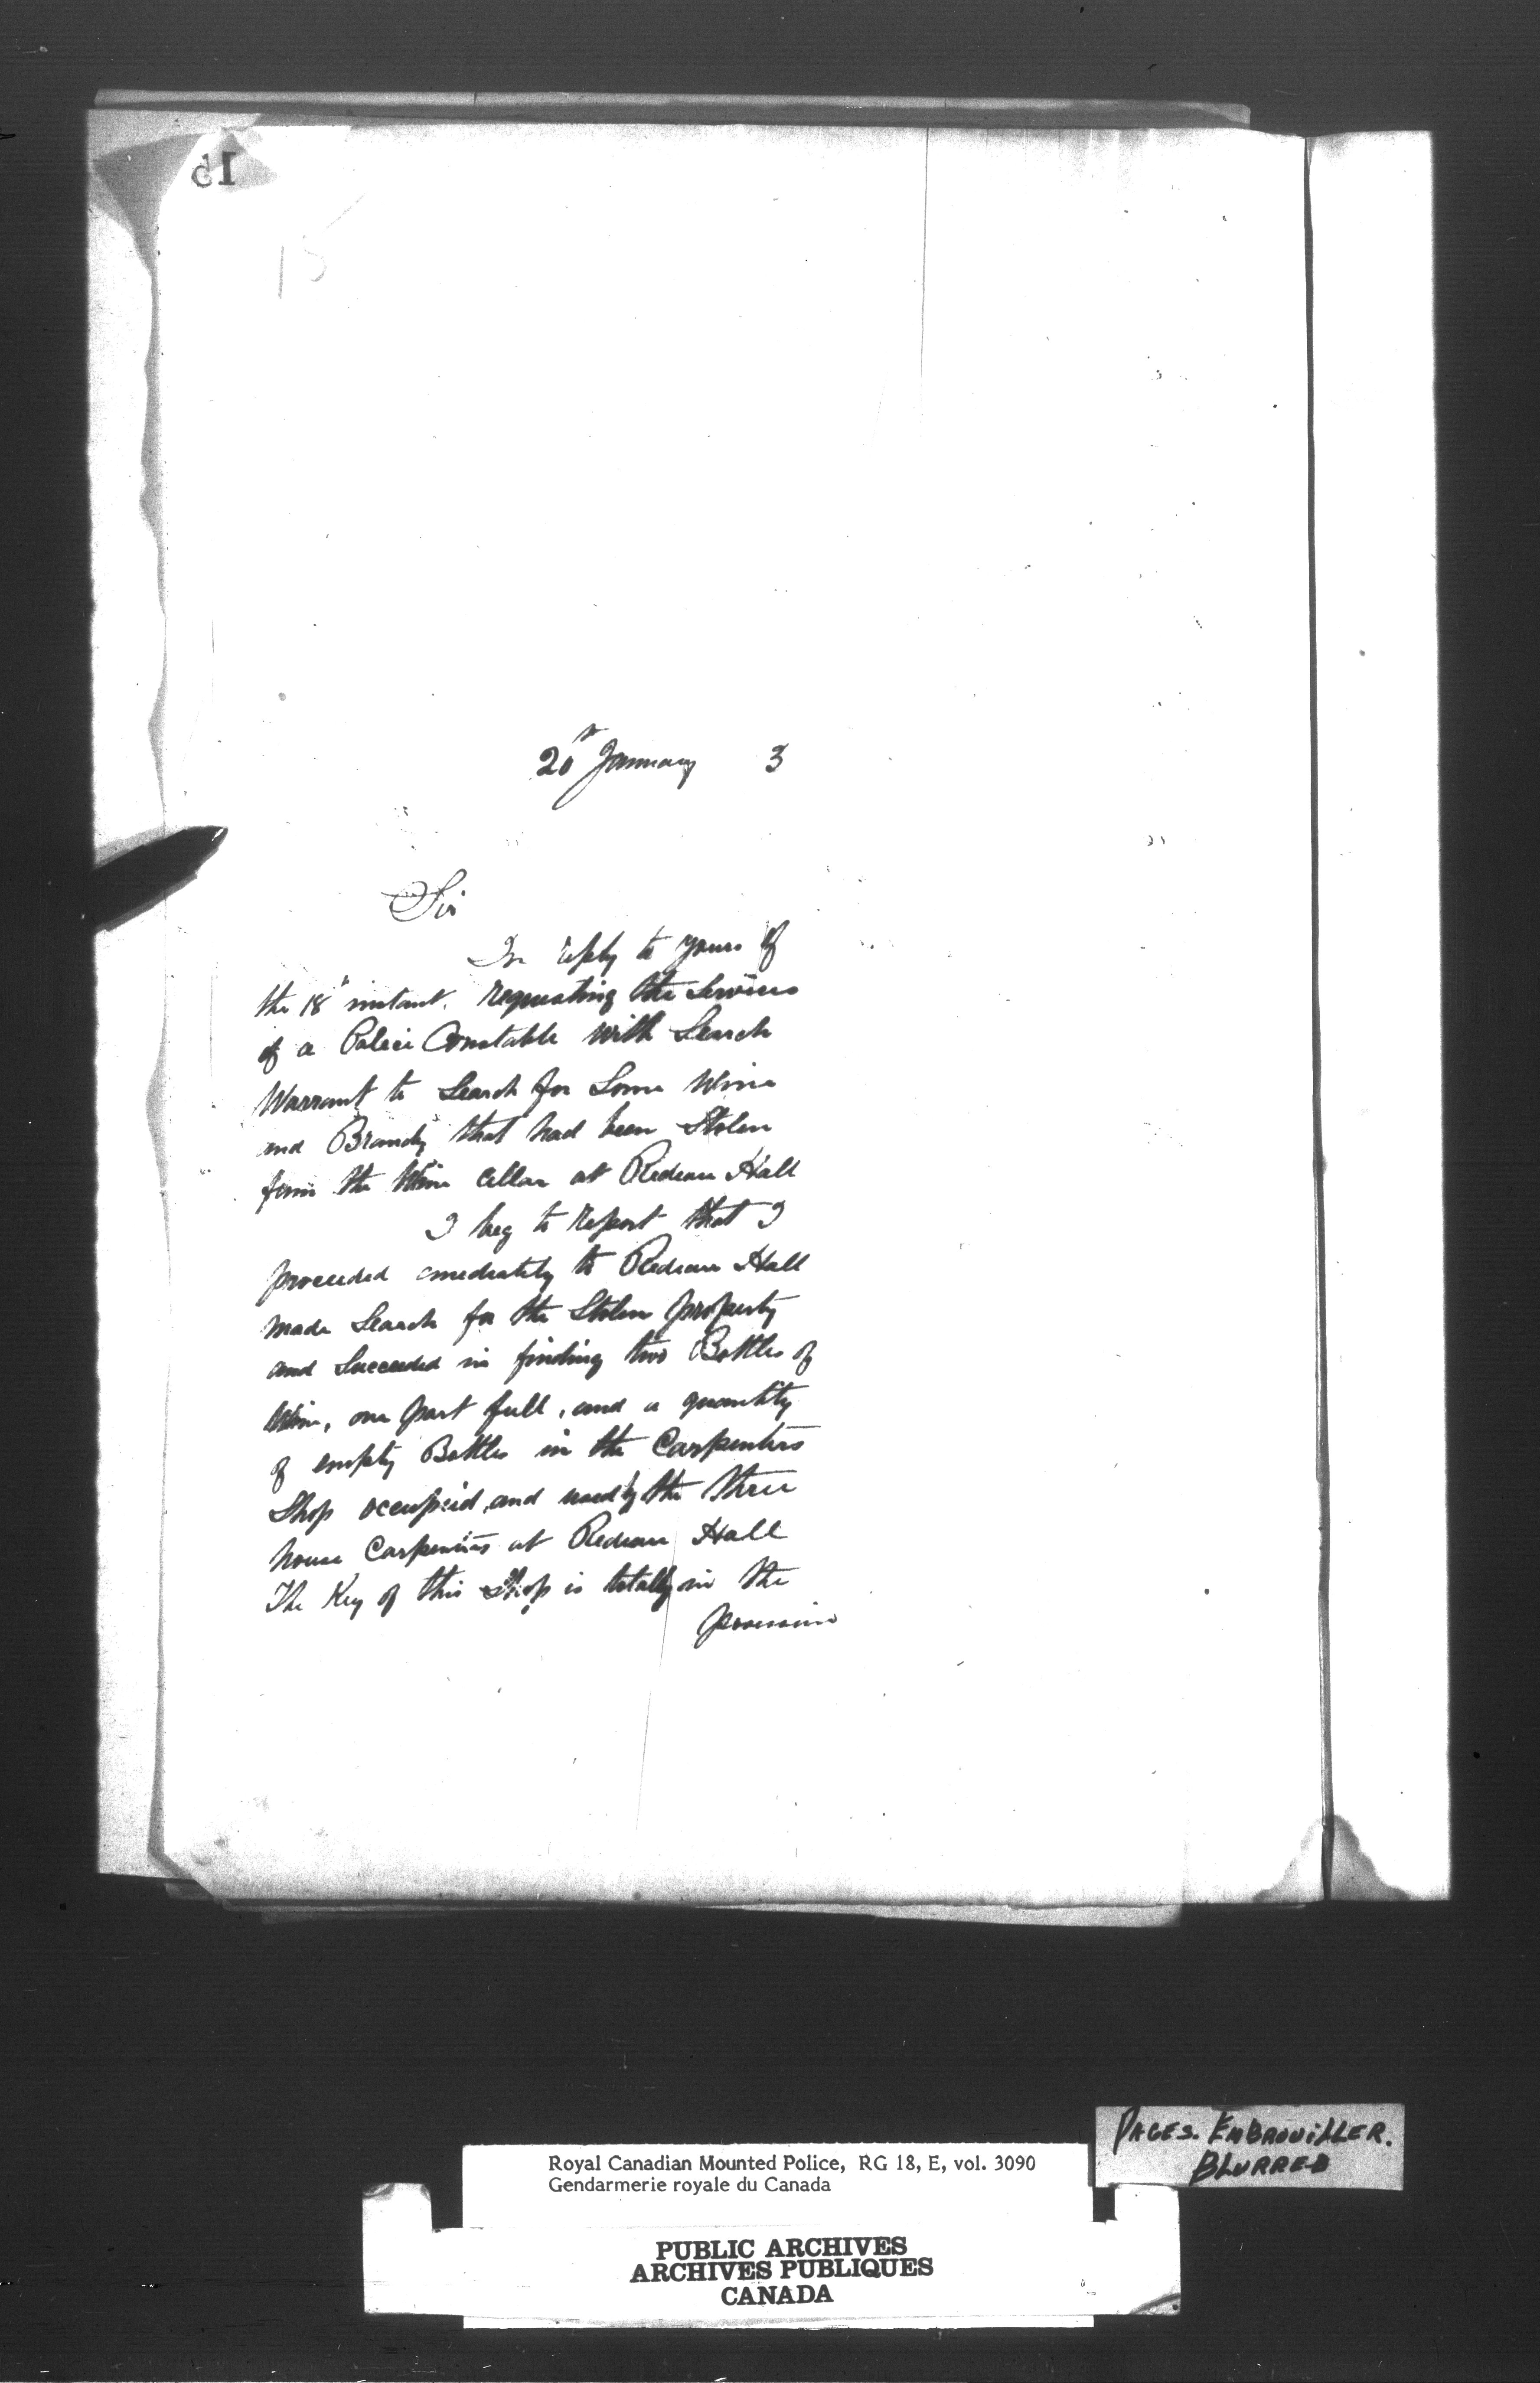 15
15
20th January 3
Sir
In reply to yours of
the 18" instant. requesting the Services
of a Police Constable with Search
Warrant to Search for Some Wine
and Brandy that had been Stolen
from the Wine Cellar at Redeau Hall
I beg to report that I
proceeded imediately to Redeau Hall
made Search for the Stolen property
and Succeeded in finding two Bottles of
Wine, one part full, and a quantity
of empty Bottles in the Carpenters
Shop occupeid, and used by the three
house Carpenters at Redeau Hall
The Key of this Shop is totally in the
possession
PAGES. EMBROUILLER.
BLURRED
Royal Canadian Mounted Police, RG 18, E, vol. 3090
Gendarmerie royale du Canada
PUBLIC ARCHIVES
ARCHIVES PUBLIQUES
CANADA